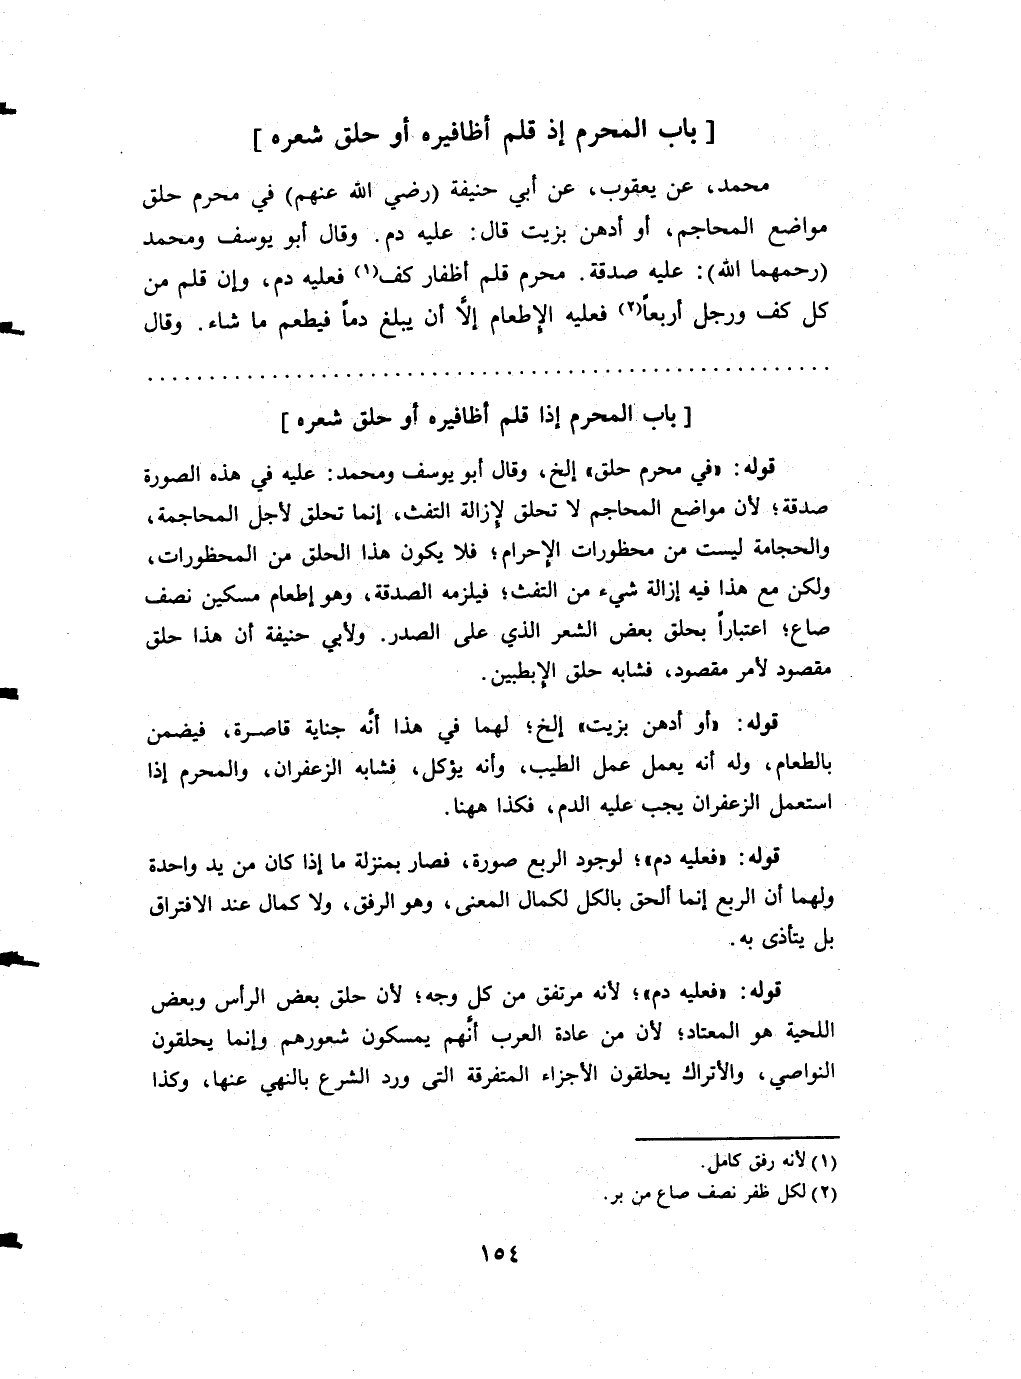 [ باب المحرم إذ قلم أظافيره أو حلق شعره ]
محمد، عن يعقوب، عن أبي حنيفة (رضي الله عنهم) في محرم حلق
مواضع المحاجم، أو أدهن بزيت قال: عليه دم. وقال أبو يوسف ومحمد
(رحمهما الله): عليه صدقة. محرم قلم أظفار كف(١) فعليه دم، وإن قلم من
كل كف ورجل أربعاً(٢) فعليه الإطعام إلَّا أن يبلغ دماً فيطعم ما شاء. وقال
[ باب المحرم إذا قلم أظافيره أو حلق شعره ]
قوله: «في محرم حلق» إلخ، وقال أبو يوسف ومحمد: عليه في هذه الصورة
صدقة؛ لأن مواضع المحاجم لا تحلق لإزالة التفث، إنما تحلق لأجل المحاجمة،
والحجامة ليست من محظورات الإحرام؛ فلا يكون هذا الحلق من المحظورات،
ولكن مع هذا فيه إزالة شيء من التفث؛ فيلزمه الصدقة، وهو إطعام مسكين نصف
صاع؛ اعتباراً بحلق بعض الشعر الذي على الصدر. ولأبي حنيفة أن هذا حلق
مقصود لأمر مقصود، فشابه حلق الإبطبين.
قوله: «أو أدهن بزيت» إلخ؛ لهما في هذا أنَّه جناية قاصرة، فيضمن
بالطعام، وله أنه يعمل عمل الطيب، وأنه يؤكل، فشابه الزعفران، والمحرم إذا
استعمل الزعفران يجب عليه الدم، فكذا ههنا.
قوله: «فعليه دم»؛ لوجود الربع صورة، فصار بمنزلة ما إذا كان من يد واحدة
ولهما أن الربع إنما ألحق بالكل لكمال المعنى، وهو الرفق، ولا كمال عند الافتراق
بل يتأذى به.
قوله: «فعليه دم»؛ لأنه مرتفق من كل وجه؛ لأن حلق بعض الرأس وبعض
اللحية هو المعتاد؛ لأن من عادة العرب أنَّهم يمسكون شعورهم وإنما يحلقون
النواصي، والأتراك يحلقون الأجزاء المتفرقة التى ورد الشرع بالنهي عنها، وكذا
(١) لأنه رفق كامل.
(٢) لكل ظفر نصف صاع من بر.
١٥٤